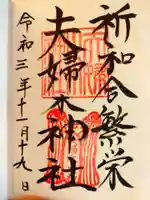 祈和合繁栄
夫婦木神社
令和三年十一月十九日